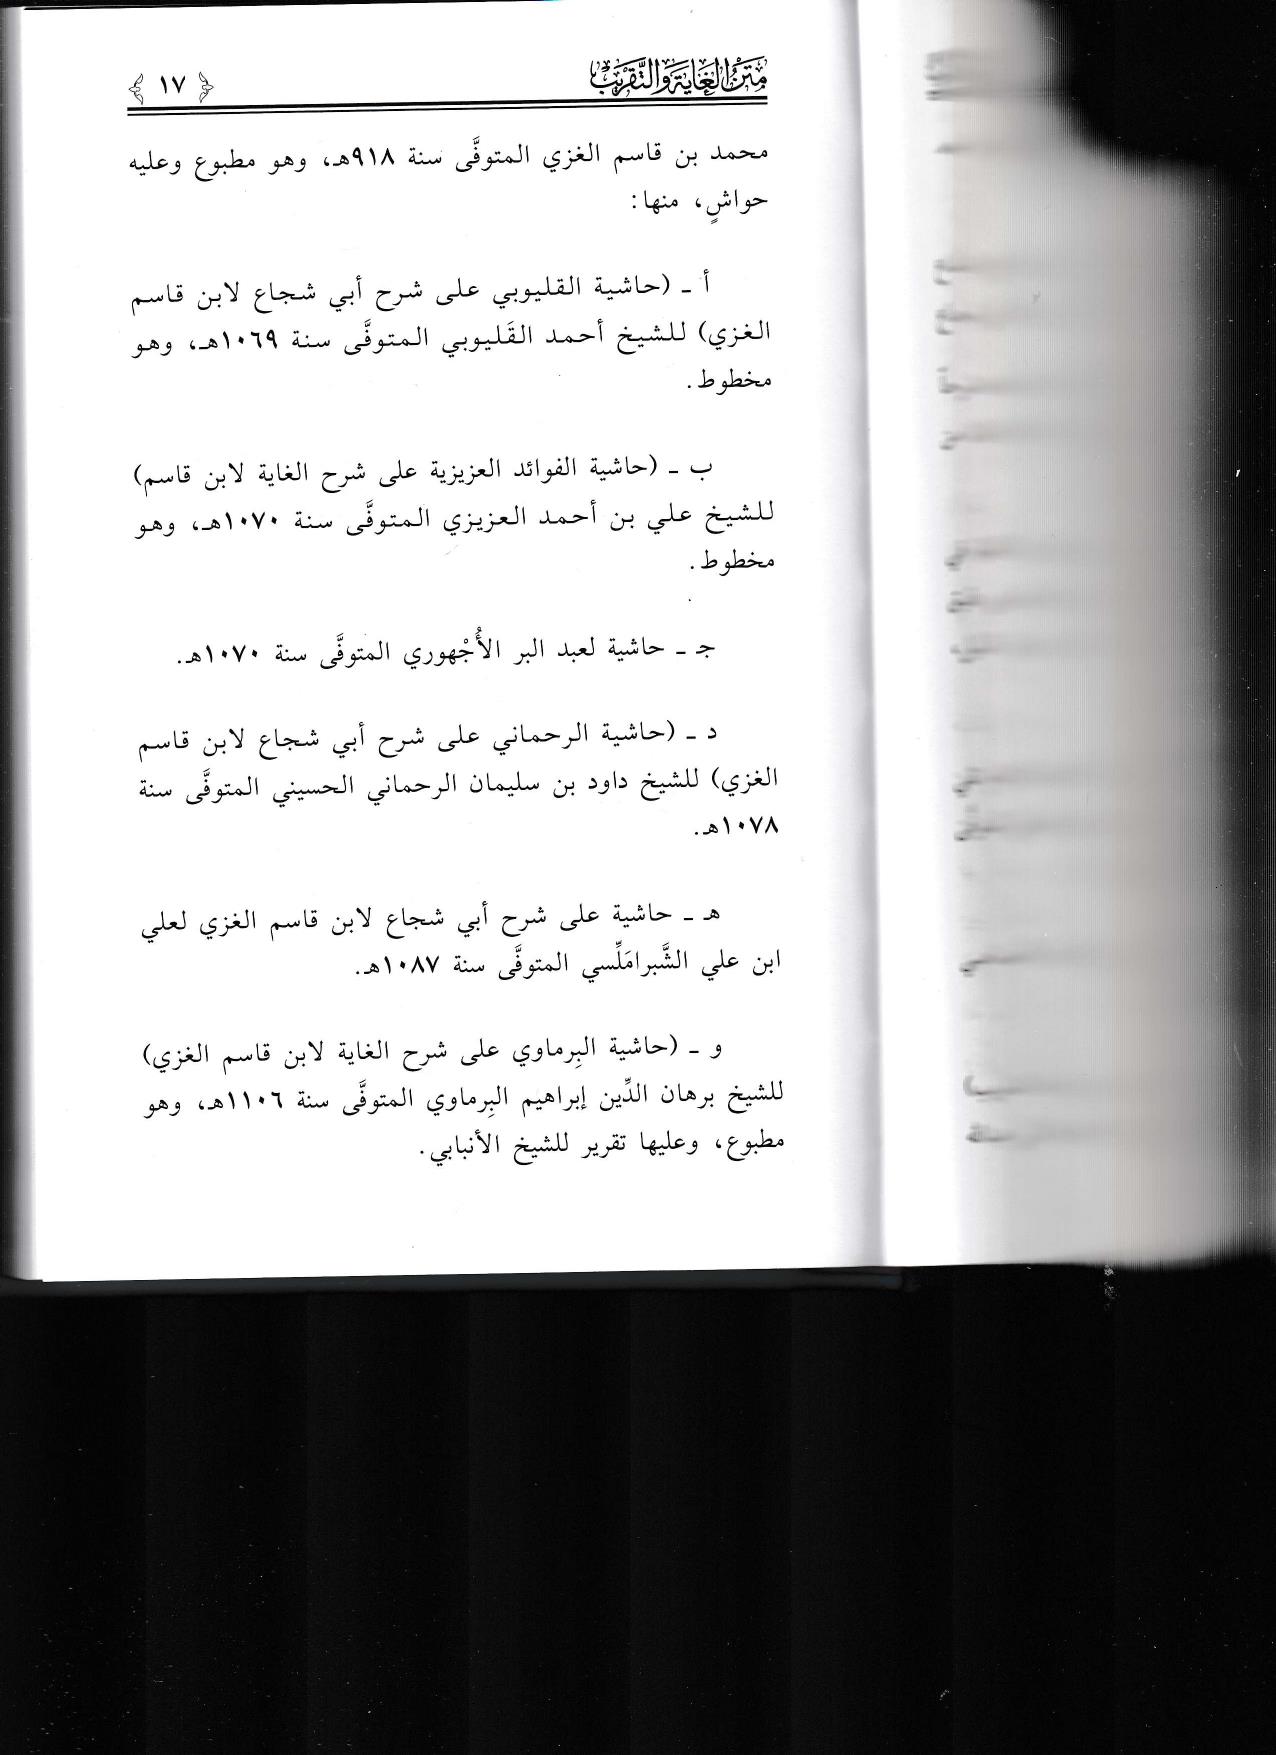 متن الغاية والتقريب
﴿ ١٧ ﴾
محمد بن قاسم الغزي المتوفَّى سنة ٩١٨هـ، وهو مطبوع وعليه
حواشٍ، منها:
أ ـ (حاشية القليوبي على شرح أبي شجاع لابن قاسم
الغزي) للشيخ أحمد القَليوبي المتوفَّى سنة ١٠٦٩هـ، وهو
مخطوط.
ب ـ (حاشية الفوائد العزيزية على شرح الغاية لابن قاسم)
للشيخ علي بن أحمد العزيزي المتوفَّى سنة ١٠٧٠هـ، وهو
مخطوط.
جـ ـ حاشية لعبد البر الأُجْهوري المتوفَّى سنة ١٠٧٠هـ.
د ـ (حاشية الرحماني على شرح أبي شجاع لابن قاسم
الغزي) للشيخ داود بن سليمان الرحماني الحسيني المتوفَّى سنة
١٠٧٨هـ.
هـ ـ حاشية على شرح أبي شجاع لابن قاسم الغزي لعلي
ابن علي الشَّبرامَلِّسي المتوفَّى سنة ١٠٨٧هـ.
و ـ (حاشية البِرماوي على شرح الغاية لابن قاسم الغزي)
للشيخ برهان الدِّين إبراهيم البِرماوي المتوفَّى سنة ١١٠٦هـ، وهو
مطبوع، وعليها تقرير للشيخ الأنبابي.